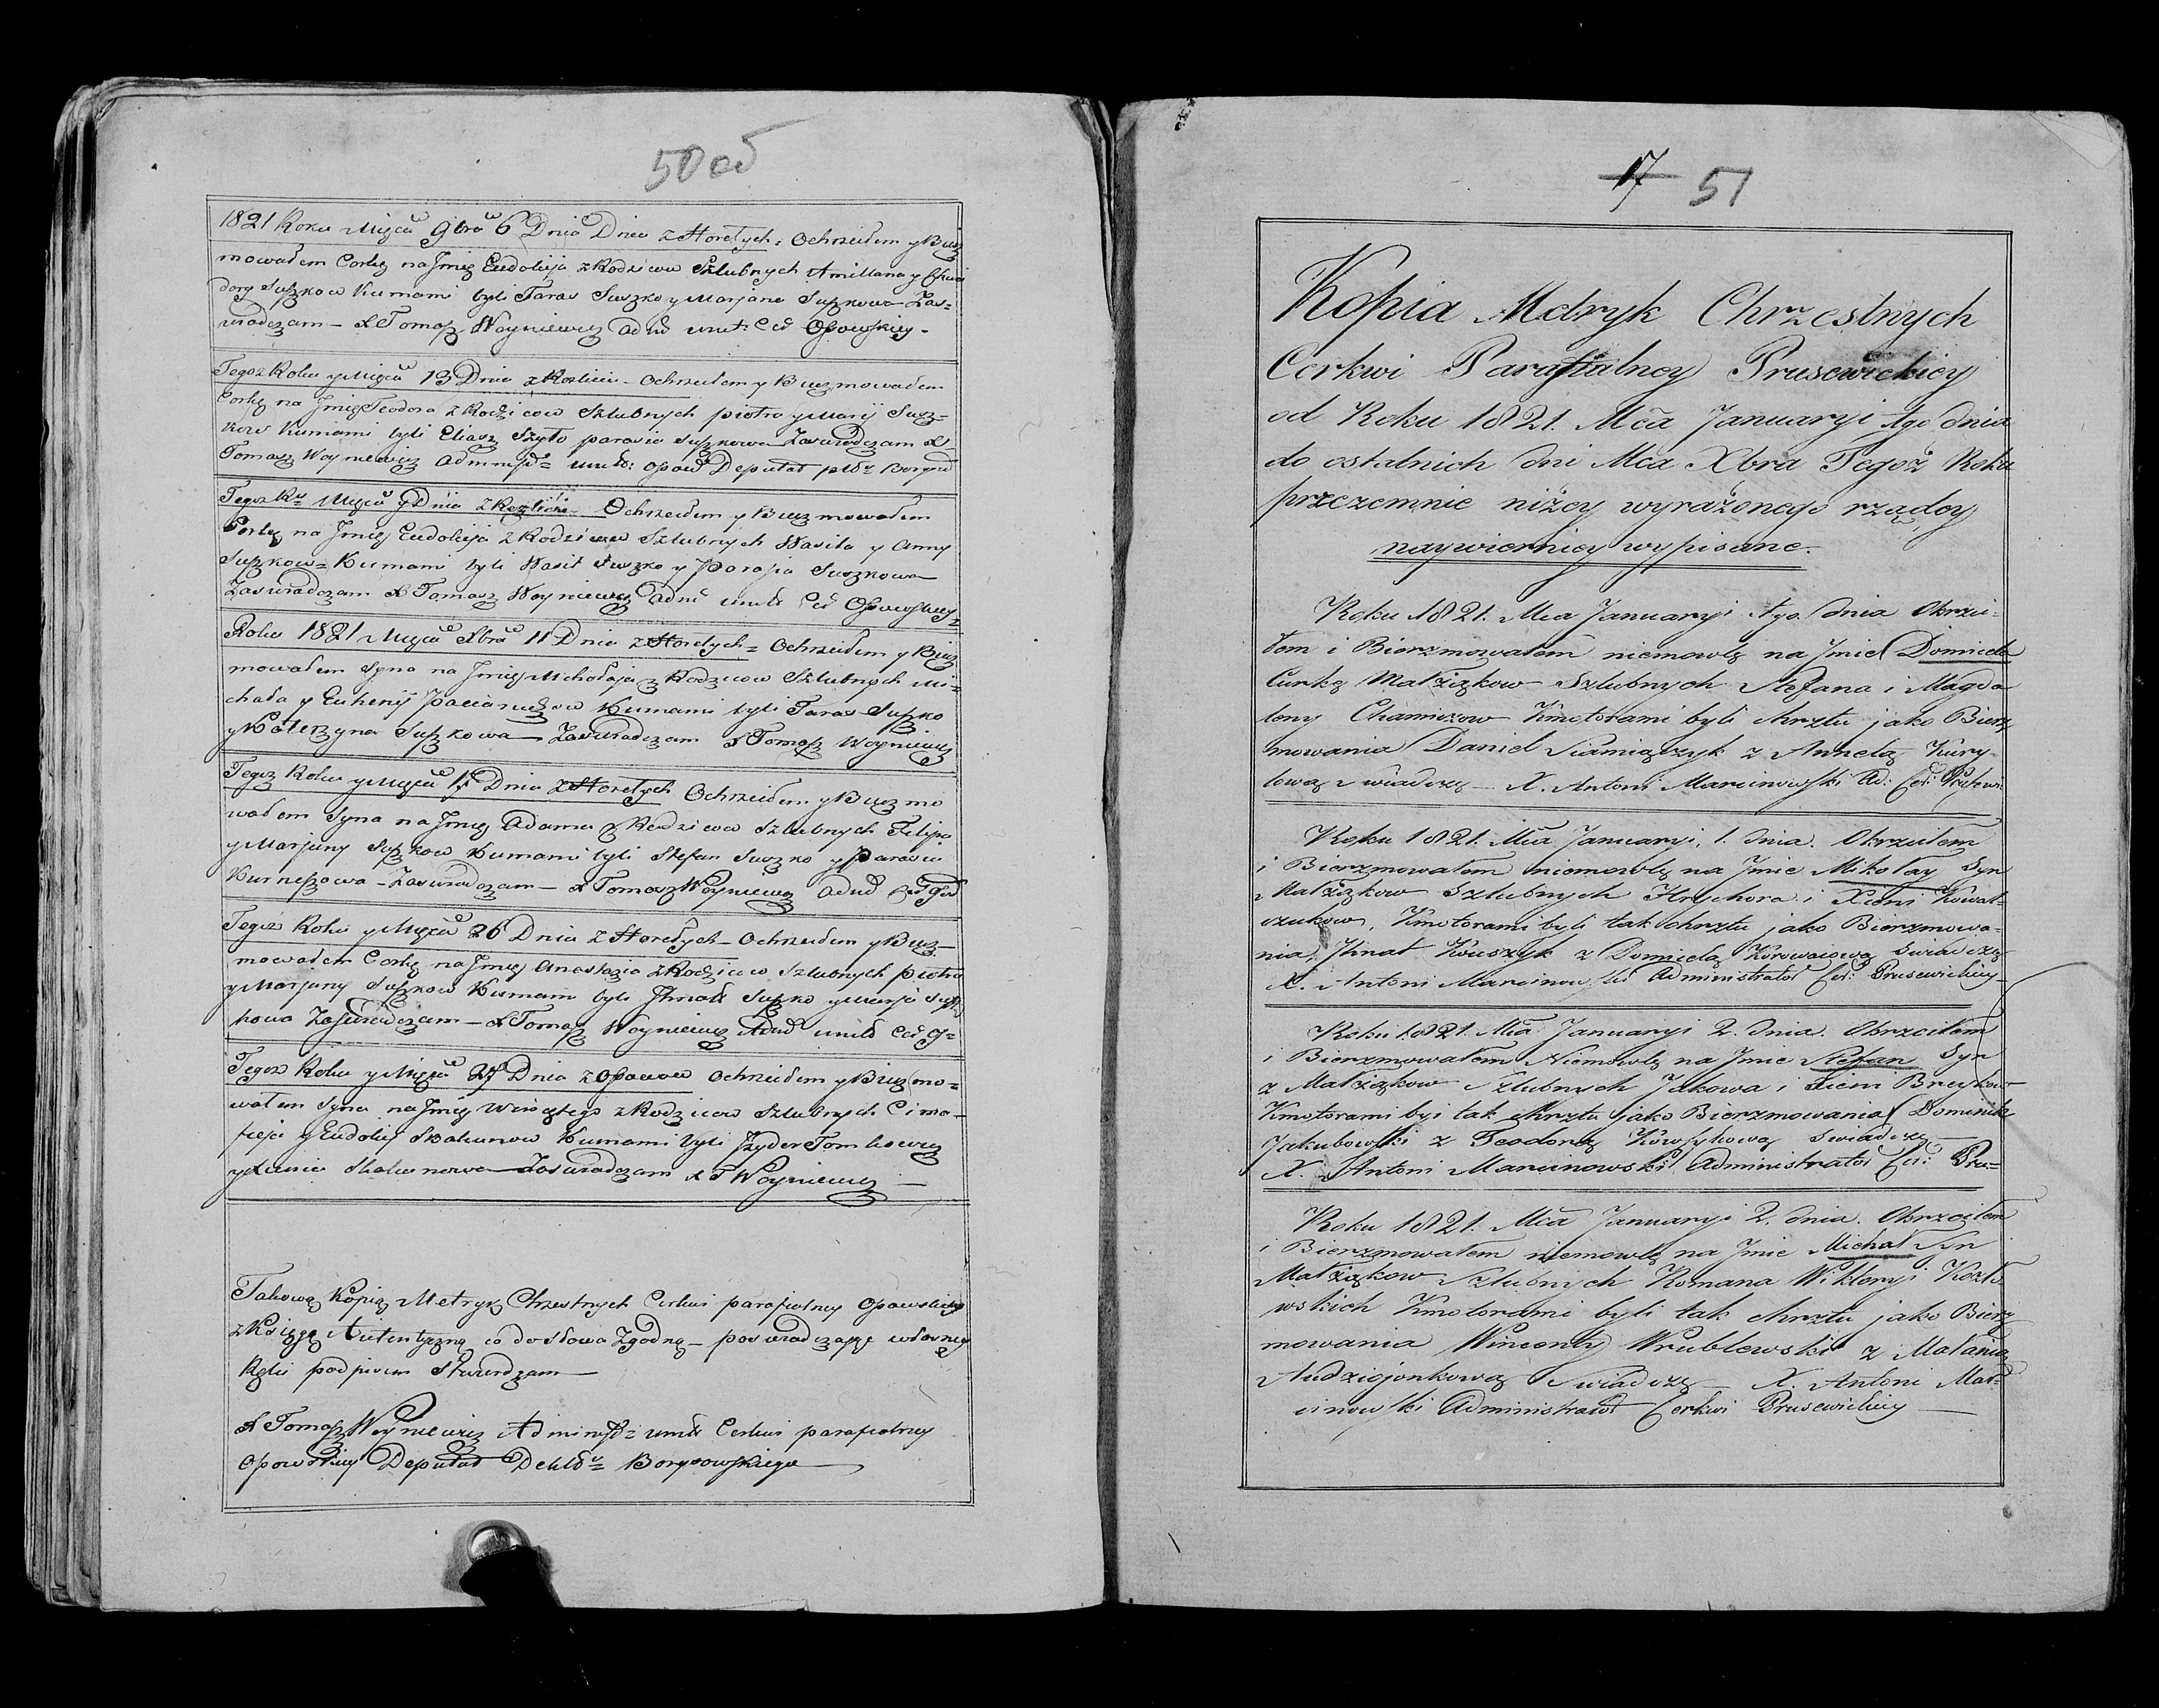 50 об
1821 Roku Mięca 9bra 6 Dnia z Horełych = Ochrzciłem y Bierz
mowałem Corkę na Jmię Eudokija z Rodziców Szlubnych Amillana y
dory Suszkow Kumami byli Taras Suszko y Marjana Suszkowa Zas=
wiadczam — X Tomasz Woyniewicz Adm unit: Cer Opowskiey -
Tegoż Roku y Mięca 13 Dnia z Kozlicz - Ochrzciłem y Bierzmowałem
Corkę na Jmię Teodora z Rodzicow Szlubnych Piotra y Marij Susz=
kow Kumami byli Eliasz Szyło parasia Suszkowa Zaswiadczam X
Tomasz Woyniewicz Administ= unit: opow Deputat
Tegoż Ru Mięca 9 Dnia z Ochrzciłem y Bierzmowałem
Corkę na Jmię Eudokija z Rodzicow Szlubnych Wasila y Anny
Suszkow = Kumami byli Wasil Suszko y Parasia Suszkowa
Zaswiadczam X Tomasz Woyniewicz Adm unit Cer Opowskiey =
Roku 1821 Mięca Xbra 11 Dnia z Horełych = Ochrzciłem y Bierz
mowałem Syna na Jmię Michołaja z Rodzicow Szlubnych Mi=
chała y Euhenij Kumami byli Taras Suszko
y Katerzyna Suszkowa Zaswiadczam X Tomasz Woyniewicz
Tegoż Roku y Mięca 17 Dnia z Horełych Ochrzciłem y Bierzmo
wałem Syna na Jmię Adama z Rodzicow Szlubnych Filipa
y Marjany Suszkow Kumami byli Stefan Suszko y Parasia
Zaswiadczam — X Tomasz Woyniewicz Adm
Tegoż Roku y Mięca 26 Dnia z Horełych - Ochrzciłem y Bierz—
mowałem Corkę na Jmię Anastazia z Rodzicow Szlubnych Piotra
y Marjany Suszkow Kumami byli Jhnat Suszko y Marja Susz
kowa Zaswiadczam — X Tomasz Woyniewicz Adm unit Cer
Tegoż Roku y Mięca 27 Dnia z Opowow Ochrzciłem y Bierzmo=
wałem Syna na Jmię Wincętego z Rodzicow Szlubnych Cimo-
fieja y Eudokij Skakunow Kumami byli Jzydor Tomkowicz
y Skakunowa — Zaswiadczam X T Woyniewicz —
Takową Kopią Metryk Chrzestnych Cerkwi parafialney Opowskiey
z Księgą Autentyczną co do słowa Zgodną — poswiadczając własney
Ręki podpisem Stwierdzam —
X Tomasz Woyniewicz Administ= unit Cerkwi parafialney
Opowskiey Deputat Borysowskiego —
17 51
Kopia Metryk Chrzestnych
Cerkwi Parafialney Prusewickiey
od Roku 1821. Mca Januaryi 1go dnia
do ostatnich dni Mca Xbra Tegoż Roku
przezemnie niżey wyrażonego rządcy
naywierniey wypisane.
Roku 1821. Mca Januaryi 1go. dnia Okrzci-
łem i Bierzmowałem niemowlę na Jmie Domicela
Curkę Małżąkow Szlubnych Stefana i Magda
leny Kmotorami byli chrztu jako Bierz
mowania Daniel z Annetą Kury-
lową Swiadczę — X. Antoni Marcinowski Ad: Cer: Prusewi
Roku 1821. Mca Januaryi, 1. dnia. Okrzciłem
i Bierzmowałem niemowlę na Jmie Mikołay Syn
Małżąkow Szlubnych Hryhora i Xieni Kował-
czukow, Kmotorami byli tak chrztu jako Bierzmowa-
nia, Jhnat z Domicelą Korowaiową Swiadczę
X. Antoni Marcinowski Administrator Cer: Prusewickiey
Roku 1821. Mca Januaryi 2. dnia. Okrzciłem
i Bierzmowałem Niemowlę na Jmie Stefan Syn
z Małżąkow Szlubnych Jakowa i Xieni
Kmotorami byi tak chrztu jako Bierzmowania Dominik
Jakubowski z Teodorą Swiadczę —
X. Antoni Marcinowski Administrator Cer: Pru=
Roku 1821. Mca Januaryi 2. dnia. Okrzciłem
i Bierzmowałem niemowlę na Jmie Michał Syn
Małżąkow Szlubnych Romana Wiktoryi Kozło
wskich Kmotorami byli tak chrztu jako Bierz
mowania Wincenty Wrublewski z Małanią
Swiadczę — X. Antoni Mar=
cinowski Administrator Cerkwi Prusewickiey —